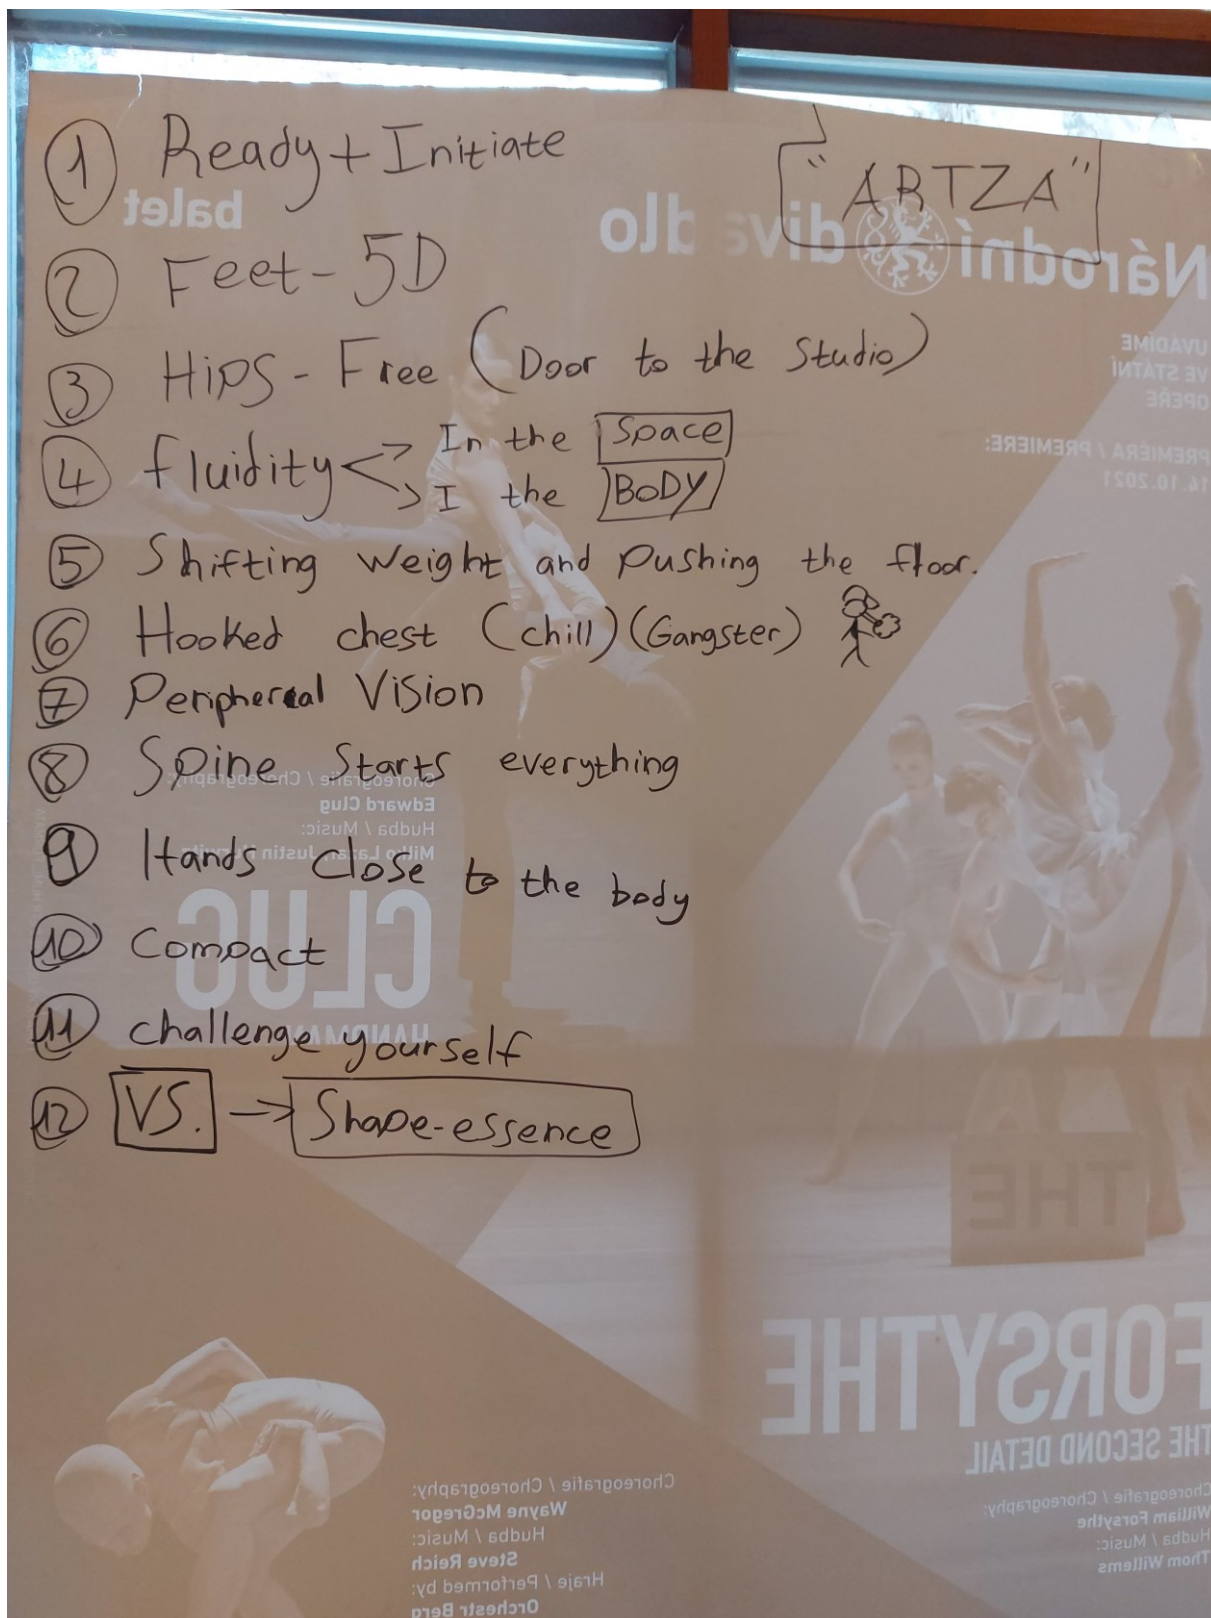 ① Ready + Initiate
"ARTZA"
② Feet - 5D
③ Hips - Free (Door to the Studio)
④ fluidity < In the Space
I the BODY
⑤ Shifting weight and pushing the floor.
⑥ Hooked chest (chill) (Gangster)
⑦ Periphereal Vision
⑧ Spine Starts everything
⑨ Hands Close to the body
⑩ Compact
⑪ challenge yourself
⑫ VS. → Shape-essence
balet
Národní divadlo
UVÁDÍME
VE STÁTNÍ
OPEŘE
PREMIÉRA / PREMIERE:
14.10.2021
Choreografie / Choreography:
Edward Clug
Hudba / Music:
Milko Lazar, Justin
CLUG
HANDMAN
THE
FORSYTHE
THE SECOND DETAIL
Choreografie / Choreography:
William Forsythe
Hudba / Music:
Thom Willems
Choreografie / Choreography:
Wayne McGregor
Hudba / Music:
Steve Reich
Hraje / Performed by:
Orchestr Berg